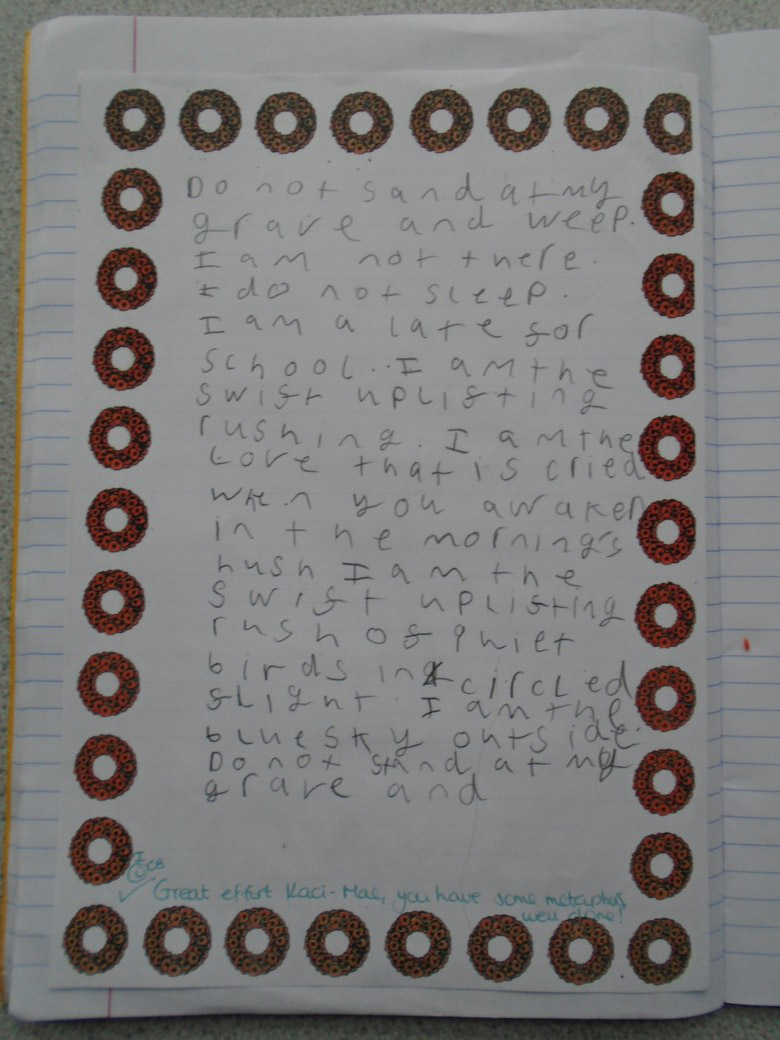 Do not sand at my
grave and weep.
I am not there.
I do not sleep.
I am a late for
school..I am the
swift uplifting
rushing. I am the
Love that is cried
when you awaken
in the mornings
hush I am the
swift uplifting
rush of quiet
birds in circled
flight. I am the
bluesky outside.
Do not stand at my
grave and
I
CB
Great effort Kaci-Mae, you have some metaphors,
well done!